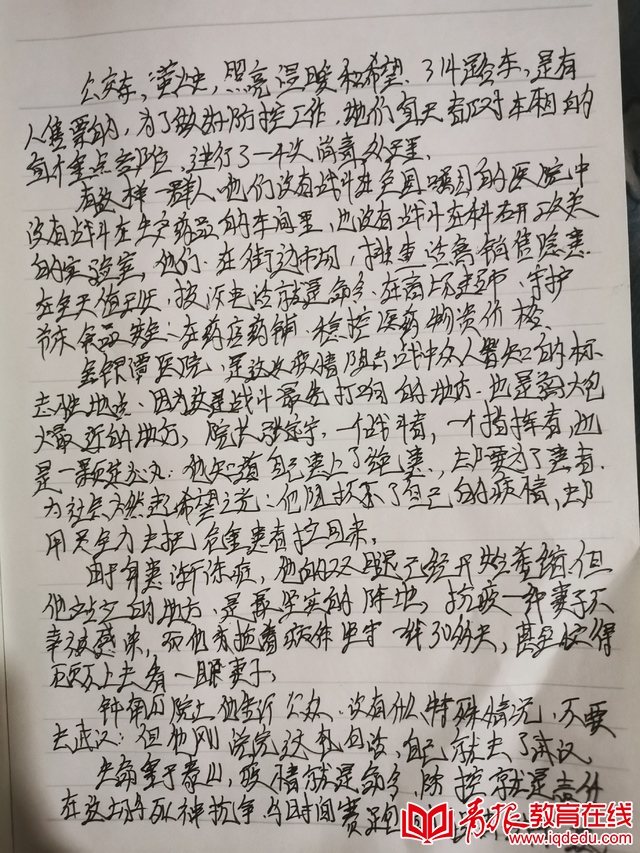 公交车，萤火，照亮温暖和希望。314路车，是有
人售票的，为了做好防控工作，她们每天都对车厢的
每个重点部位，进行了一次消毒处理。
有这样一群人他们没有战斗在全国瞩目的医院中
没有战斗在生产药品的车间里，也没有战斗在科研攻关
的实验室，他们：在街边市场，排查活禽销售隐患
在全天值班，投诉电话就是命令，在商场超市，守护
节末食品安全；在药店药铺，稳控医药物资价格。
金银潭医院，是这次疫情阻击战中众人皆知的标
志性地点，因为这是战斗最先打响的地方，也是离火炮
火最近的地方，院长张定宇，一个战斗者，一个指挥者，也
是一颗定心丸：他知道自己患上了绝患，却要为了患者
为社会燃起希望之光：他阻挡不了自己的病情，却
用尽全力去把危重患者拉回来。
由于身患渐冻症，他的双腿已经开始萎缩，但
他站立的地方，是最坚实的阵地，抗疫一种妻子不
幸被感染，而他却拖着病体坚守一线30多天，甚至没得
顾不上去看一眼妻子。
钟南山院士他告诉公众，没有什么特殊情况，不要
去武汉：但他刚说完这些句话，自己就去了武汉
生命重于泰山，疫情就是命令，防控就是责任
在这场与死神抗争，与时间赛跑
青报教育在线
www.iqdedu.com